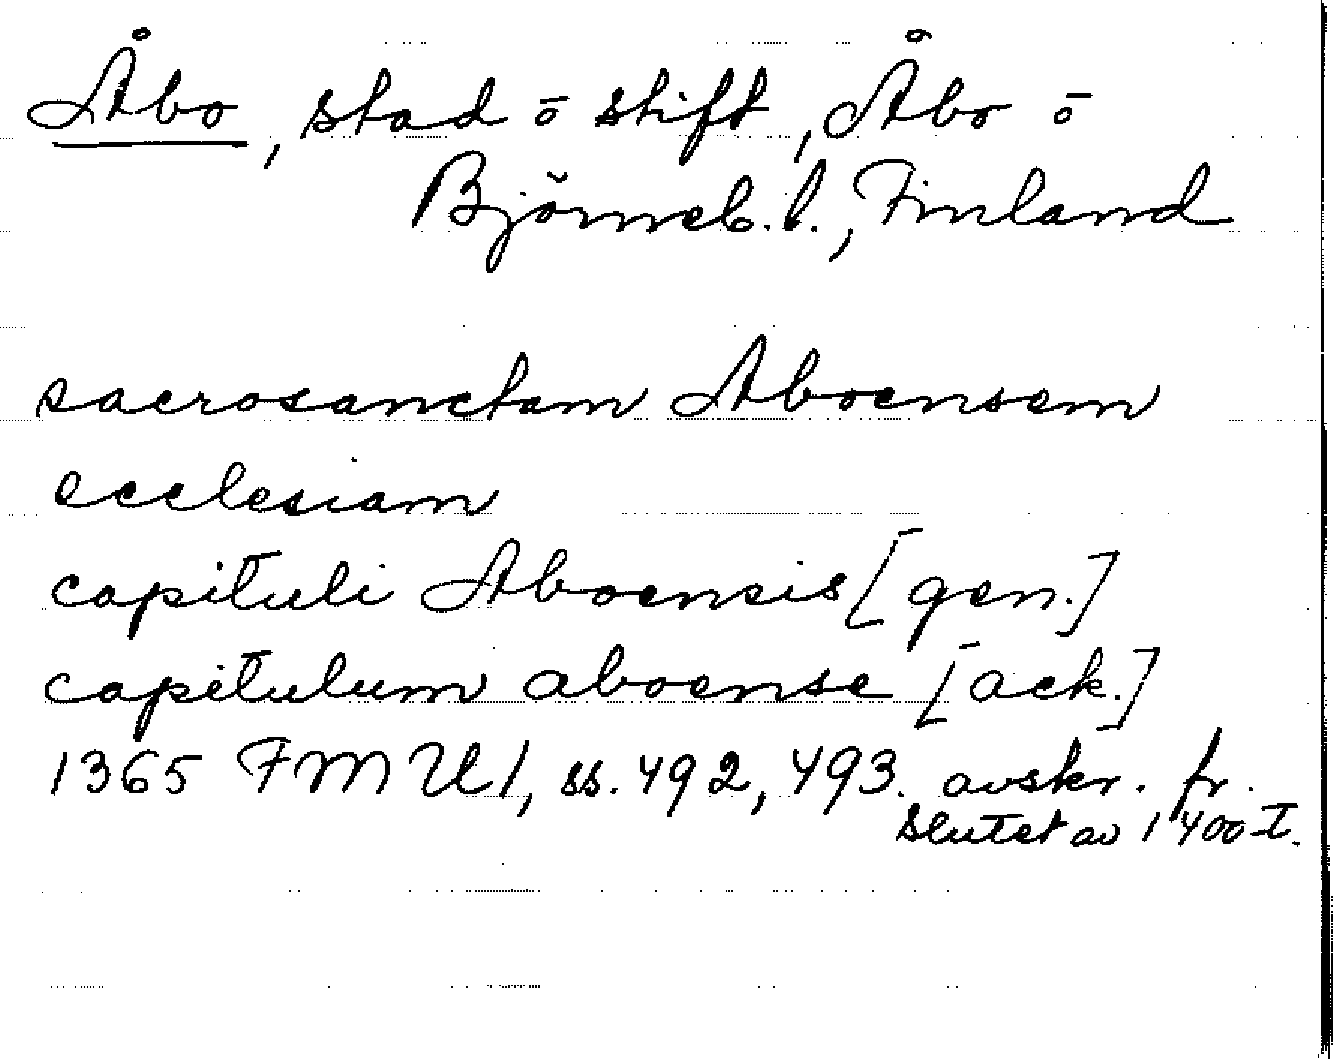 Åbo, stad ō stift, Åbo ō
Björneb. l., Finland
sacrosanctam Aboensem
ecclesiam
capituli Aboensis [gen.]
capitulum aboense [ack.]
1365 FMU 1, ss. 492, 493. avskr. fr.
slutet av 1400-t.